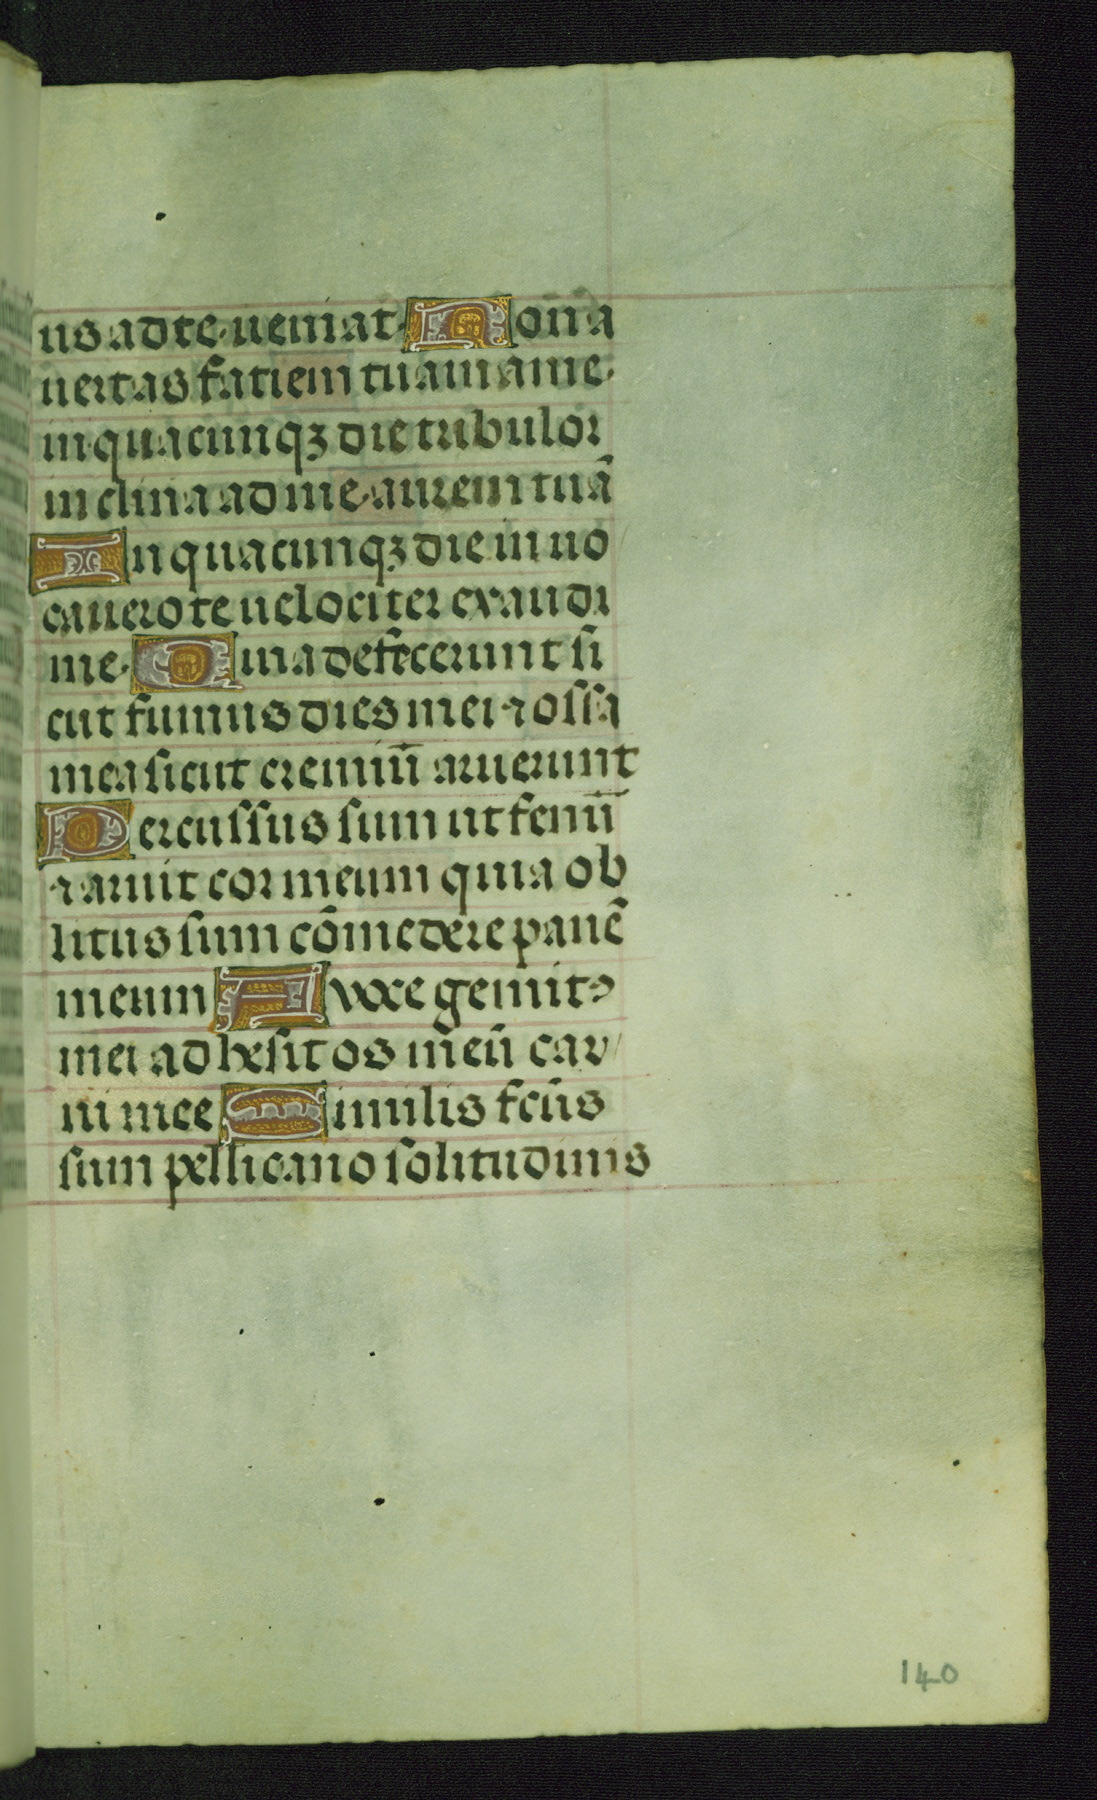 us ad te ueniat. Non a
uertas fatiem tuam a me.
in quacunqꝫ die tribulor
inclina ad me aurem tuã
In quacunqꝫ die inuo
cauero te uelociter exaudi
me. Quia defecerunt si
cut fumus dies mei ⁊ ossa
mea sicut cremiũ aruerunt
Percussus sum ut fenũ
⁊ aruit cor meum quia ob
litus sum cõmedere panẽ
meum A voce gemitꝰ
mei adhesit os meũ car
ni mee Similis fcũs
sum pellicano solitudinis
140